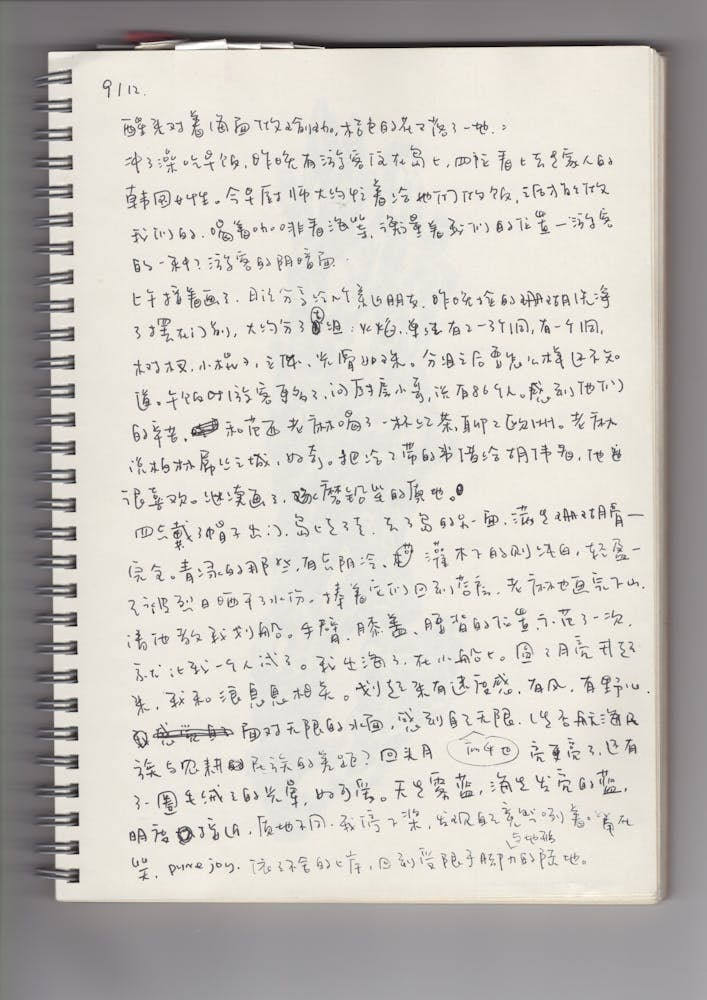 9/12.
醒来对着海面做瑜伽。桔色的花又落了一地。
冲了澡吃早饭，昨晚有游客住在岛上，四位看上去是家人的
韩国女性。今早厨师大约忙着给她们做饭，之后才能做
我们的。喝着咖啡看海学，衡量着我们的位置一游客
的一种？游客的阴暗面。
上午接着画了，日记分享给几个亲近朋友。昨晚捡的珊瑚洗净
了摆在门前，大约分了七组：火焰，单注有2-3个洞，有一个洞，
树杈，小棍子，立体，光滑如珠。分组之后要怎么样还不知
道。午饭时游客更多了，问厨房小哥，说有86个人。感到他们
的辛苦。和范西 老林喝了一杯红茶，聊了欧洲。老林
说柏林属灰之城，好奇。把冷了带的书借给胡伟易，他也
很喜欢。继续画了，磨铅笔的质地。
四点戴了帽子出门，岛上走了走，去了岛的另一面，满是珊瑚骨一
完全。青绿的那些，有点阴冷，灌木下的则洁白，轻盈一
是被烈日晒干了水份。捧着它们回到营房，老林也画完下山，
请他教我划船。手臂、膝盖、腰背的位置示范了一次，
就让我一个人试了。我出海了，在小船上。圆了月亮升起
来，我和浪息息相关。划起来有速度感，有风，有野心。
面对无限的水面，感到自己无限。是否航海民
族与农耕民族的差距？回头月 亮更亮了，还有
了一圈毛绒绒的光晕，好可爱。天是雾蓝，海是发亮的蓝，
明度接近，质地不同。我停下桨，发现自己竟然咧着嘴在
笑，pure joy. 依依不舍的上岸，回到受限于脚力与地形的陆地。